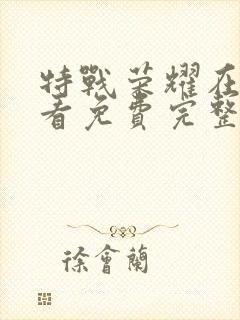 特戰榮耀在
看免費完整
徐會蘭